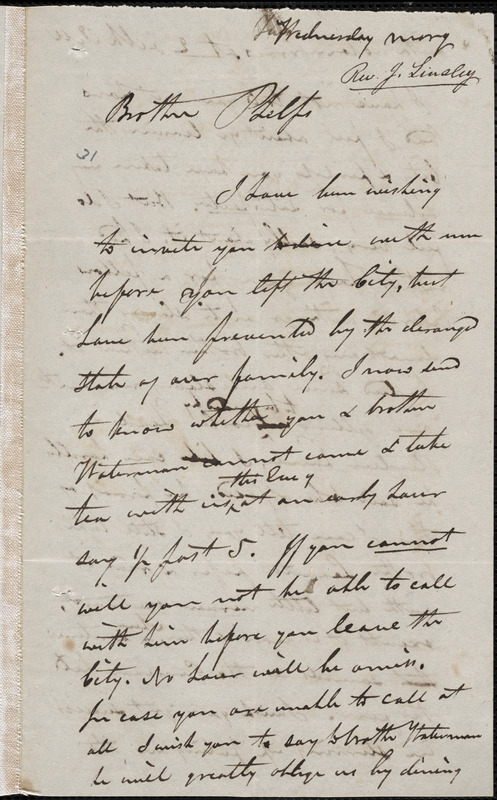 Wednesday morg
Rev. J. Linsley
Brother Phelps
31
I have been wishing
to invite you to dine with me
before you left the City, but
have been prevented by the deranged
state of our family. I now send
to know whether you & brother
Waterman cannot come & take
tea with us, this Eveg at an early hour
say ½ past 5. If you cannot
will you not be able to call
with him before you leave the
City. No hour will be amiss.
In case you are unable to call at
all I wish you to say to brother Waterman
he will greatly oblige us by dining